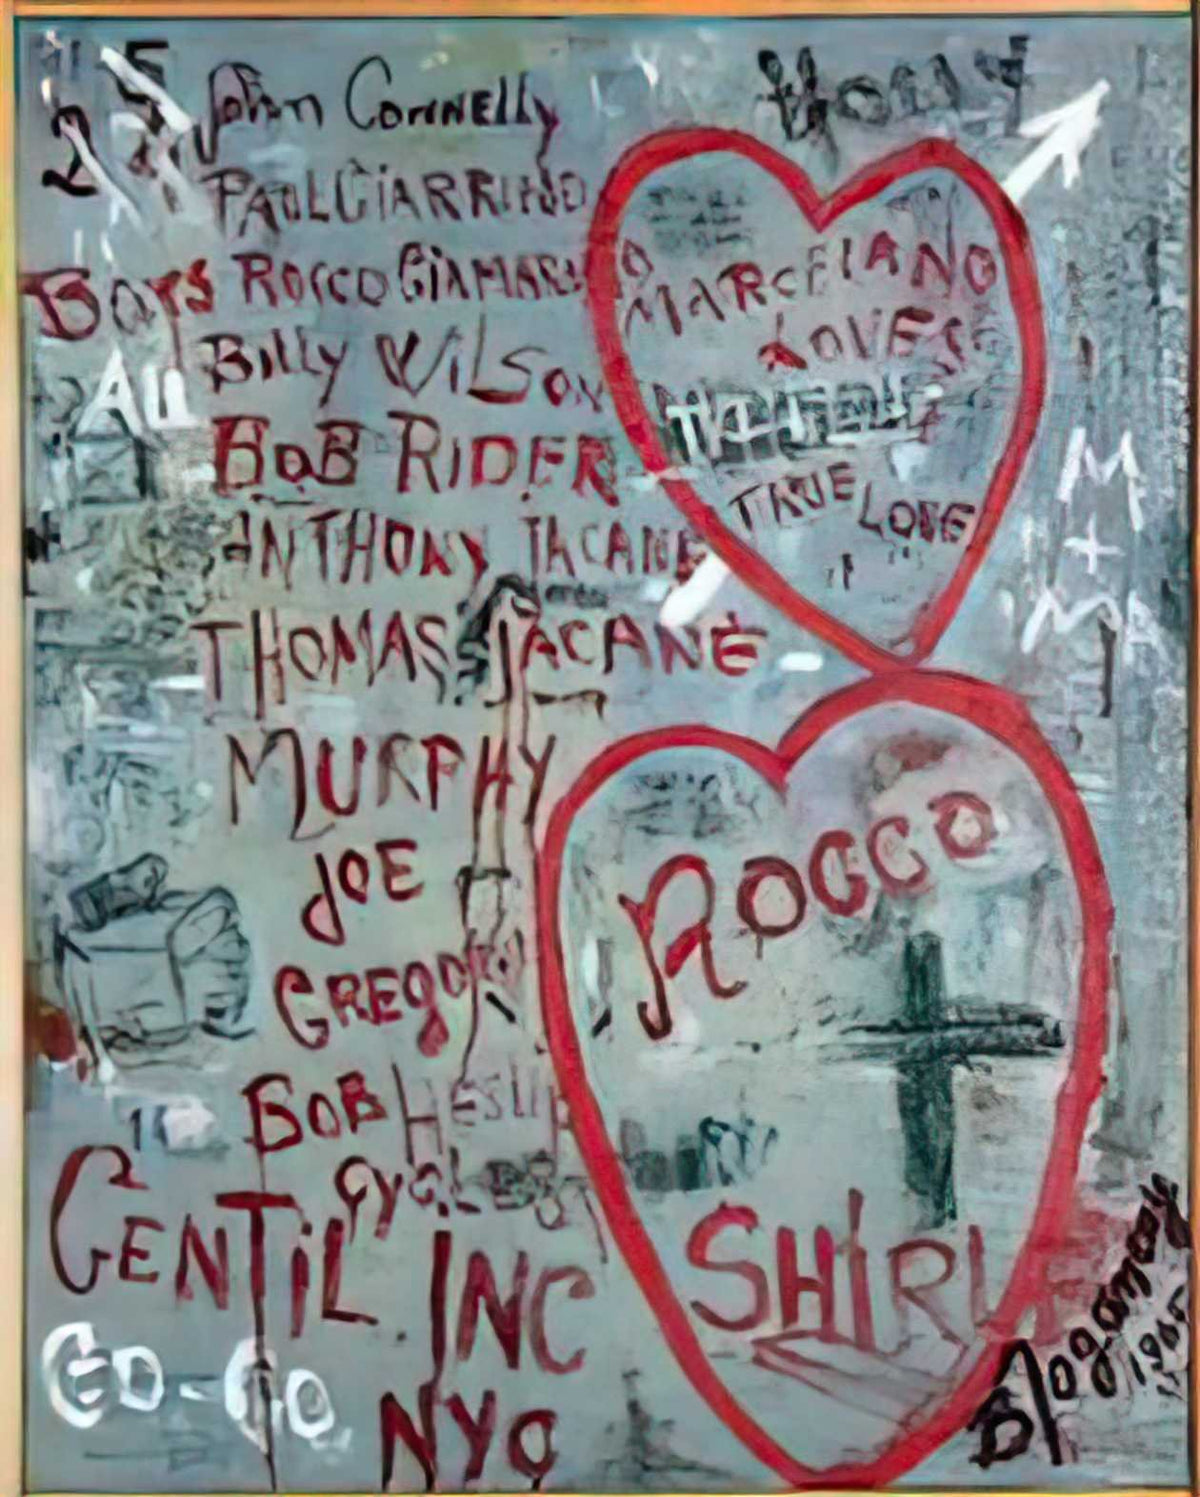 25
John Connelly
PAUL CiARRINO
BOYS
ROCCO GiAMARINO
All
Billy WilSon
BOB RIDER
ANTHONY JACANE
THOMAS JACANE
MURPHY
JOE
GREGORY
BOB HESLIP
CYCLE
GENTiL INC
GO-GO
NYC
MARCELANO
LOVES
TRUE LOVE
M
+
MA
ROCCO
SHIRLE
1965